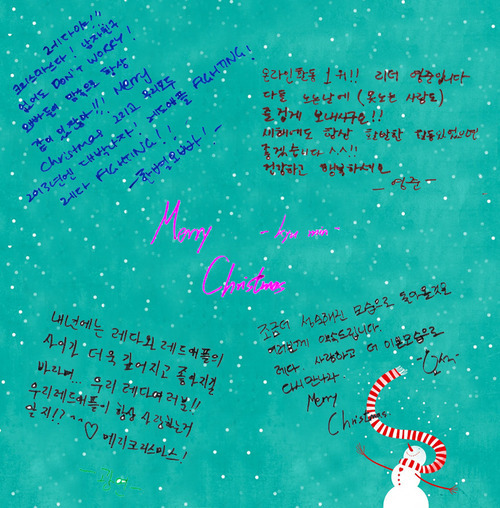 레다야!!!
크리스마스다! 남자친구
없어도 DON'T WORRY!
오빠들이 맘속으로 항상
같이 있잖아!!! Merry
Christmas 그리고 우리모두
2013년엔 대박나자! 레드애플 FIGHTING!
레다 FIGHTING!!
온라인활동 1위!! 리더 영준입니다
다들 노는날에 (못노는 사람도)
즐겁게 보내시구요!!
새해에도 항상 활발한 활동있었으면
좋겠습니다 ^.^!!
건강하고 행복하세요
- 영준 -
Merry
- hyo min -
Christmas
내년에는 레다와 레드애플의
사이가 더욱 깊어지고 좋아지길
바라며... 우리 레다여러분!!
우리레드애플이 항상 사랑하는거
알지!? ^^♡ 메리크리스마스!
조금더 성숙해진 모습으로 돌아올것을
여러분께 약속드립니다.
레다. 사랑하고 더 이쁜모습으로
다시만나자
Merry
Christmas.